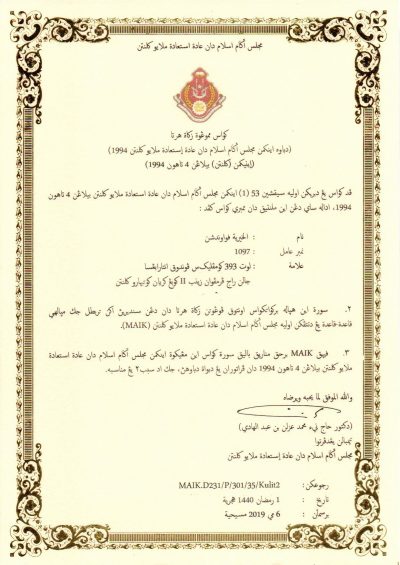 مجلس اݢام اسلام دان عادة استعادة ملايو كلنتن
كواس مموڠوت زكاة هرتا
(دباوه اينكمن مجلس اݢام اسلام دان عادة إستعادة ملايو كلنتن 1994)
(إينيكمن (كلنتن) بيلاڠن 4 تاهون 1994)
قد كواس يڠ دبريكن اوليه سيقشين 53 (1) اينكمن مجلس اݢام اسلام دان عادة استعادة ملايو كلنتن بيلاڠن 4 تاهون
1994، اداله ساي دڠن اين ملنتيق دان ممبري كواس كقد :
نام : الخيرية فواوندشن
نمبر عامل : 1097
علامة : لوت 393 كومڤليكس ڤوندوق انتارابڠسا
جالن راج ڤرمڤوان زينب II كوبڠ كريان كوتابهارو كلنتن
٢. سورة اين بركواتكواس اونتوق ڤوڠوتن زكاة هرتا دان دڠن سنديرين اكن تربطل جك ميالهي
قاعدة٢ قاعدة يڠ دتتڤكن اوليه مجلس اݢام اسلام دان عادة استعادة ملايو كلنتن (MAIK).
٣. ڤيهق MAIK برحق مناريق باليق سورة كواس اين مڠيكوة اينكمن مجلس اݢام اسلام دان عادة استعادة
ملايو كلنتن بيلاڠن 4 تاهون 1994 دان ڤراتوران يڠ دبوات دباوهن، جك اد سبب٢ يڠ مناسبه.
والله الموفق لما يحبه ويرضاه
(دكتور حاج نيء محمد عزلن بن عبد الهادي)
تيمبالن يڠدڤرتوا
مجلس اݢام اسلام دان عادة إستعادة ملايو كلنتن
رجوعكن : MAIK.D231/P/301/35/Kulit2
تاريخ : 1 رمضان 1440 هجرية
برسمأن : 6 مي 2019 مسيحية